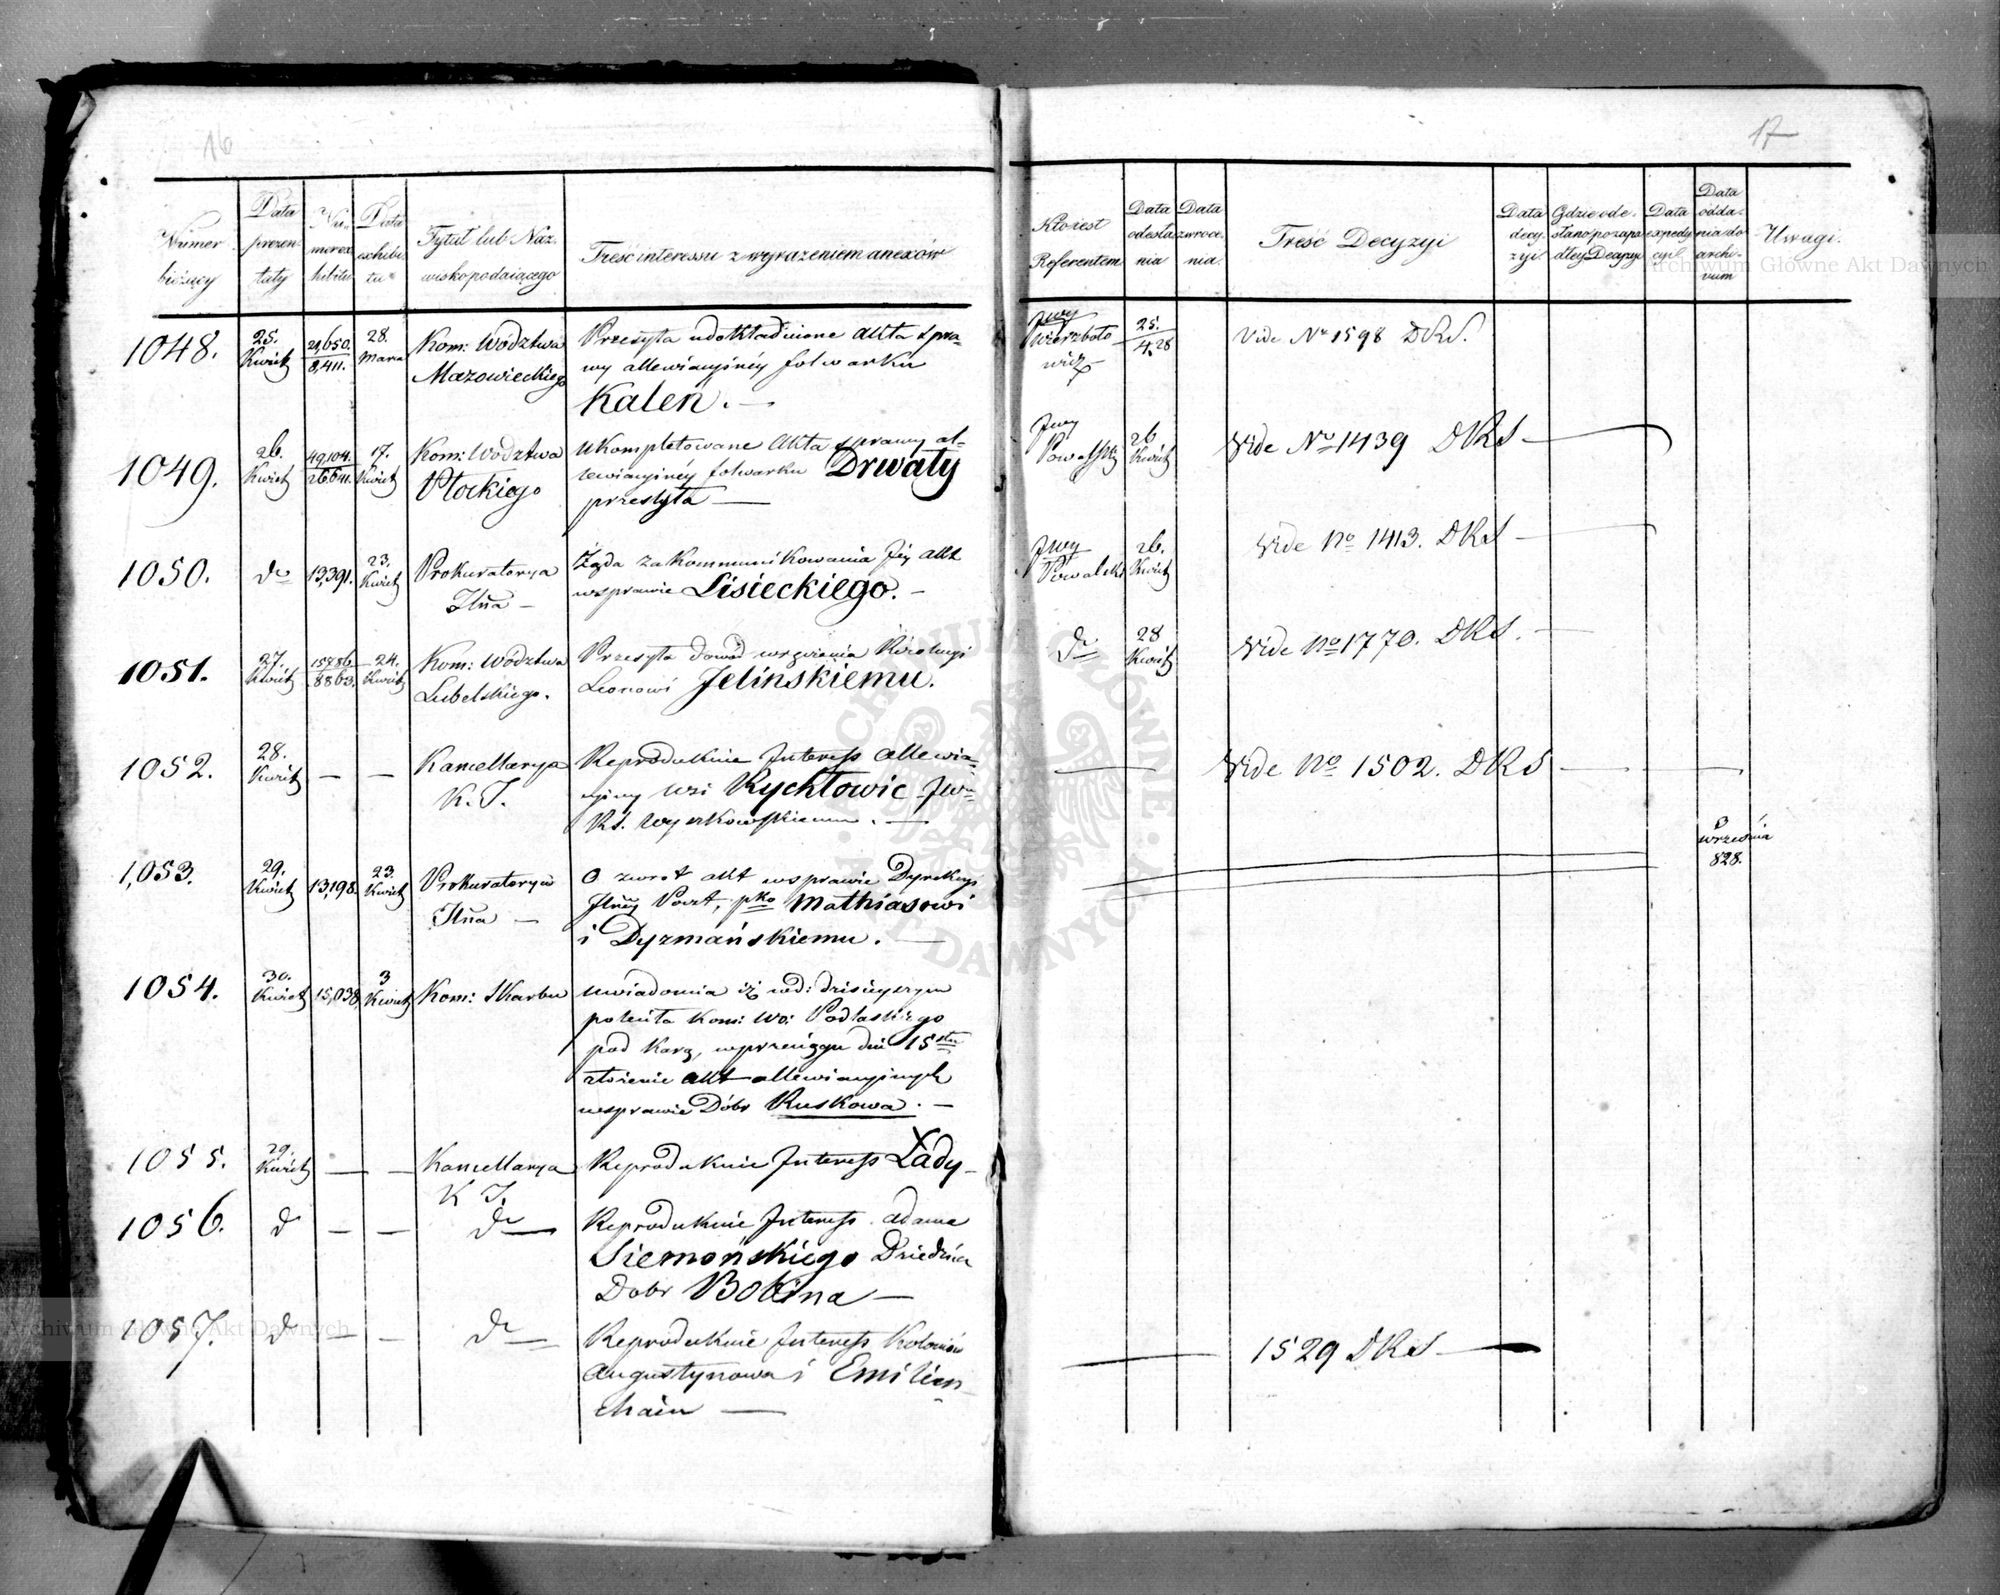 16
Numer bieżący
Data prezentaty
Numer exhibitu
Data exhibitu
Tytuł lub Nazwisko podaiącego
Treść interessu z wyrażeniem anexów
1048.
25. Kwiet
28. Marca
Kom: Wództwa
Mazowieckiego
Przesyła udokładnione akta spra-
wy allewiacyjnéy folwarku
Kaleń. —
1049.
26. Kwiet
49,104.
26641.
17. Kwiet
Kom: Wództwa
Płockiego
Ukompletowane Akta sprawy al-
lewiacyjnéy folwarku Drwały
przesyła —
1050.
do
13,391.
23. Kwiet
Prokuratorya
Jlna —
Żąda zakommunikowania Jéy akt
wsprawie Lisieckiego. —
1051.
27. Kwiet
15786
8863.
24. Kwiet
Kom: Wództwa
Lubelskiego.
Przesyła dowód wręczenia
Leonowi Jelinskiemu.
1052.
28. Kwiet
— —
Kancellarya
K. J.
Reprodukuie Interess allewia-
cyiny wsi Rychłowic
1,053.
29. Kwiet
13,198.
23. Kwiet
Prokuratorya
Jlna —
O zwrot akt wsprawie Dyrekcyi
Jlnéy Poczt, pko Mathiasowi
i Dyzmańskiemu. —
1054.
30. Kwiet
15,038.
3 Kwiet
Kom: Skarbu
uwiadomia iż pod: dzisieyszym
poleciła Kom: Wo: Podlaskiego
pod karą, wprzeciągu dni 15stu
złożenie akt allewiacyjnych
wsprawie Dóbr Ruskowa. —
1055.
29. Kwiet
— —
Kancellarya
K J.
Reprodukuie Interess Łady —
1056.
do
— —
do —
Reprodukuie Interess Adama
Siemońskiego Dziedzica
Dobr Bokina —
1057.
do
— —
do —
Reprodukuie Interess Kolonów
Augustynowa i Emilien-
17
Kto iest Referentem
Data odesłania
Data zwrocenia.
Treść Decyzyi
Data decyzyi
Data expedycyi
Data oddania do archivum
Uwagi.
JWy
Wierzbołowicz
25.
4. 28
Vide No 1598 DKS.
JWy
Powalski
26 Kwiet
Vide No 1439 DKS —
JWy
Powalski
26. Kwiet
Vide No 1413. DKS —
do
28 Kwiet
Vide No 1770. DKS. —
— Vide No 1502. DKS — —
3
wrzesnia
828.
— 1529 DKS —
ARCHIWUM GŁÓWNE AKT DAWNYCH
Archiwum Główne Akt Dawnych
Archiwum Główne Akt Dawnych